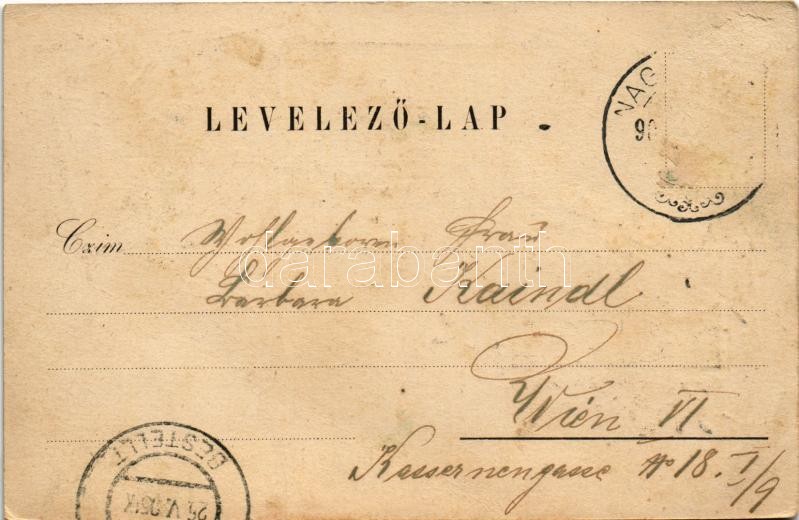 LEVELEZŐ-LAP
NAG
90
Czim
Wohlgeboren Frau
Barbara Kaindl
Wien VI
Kasernengasse № 18. I/9
BESTELLT
25 V 05
darabanth